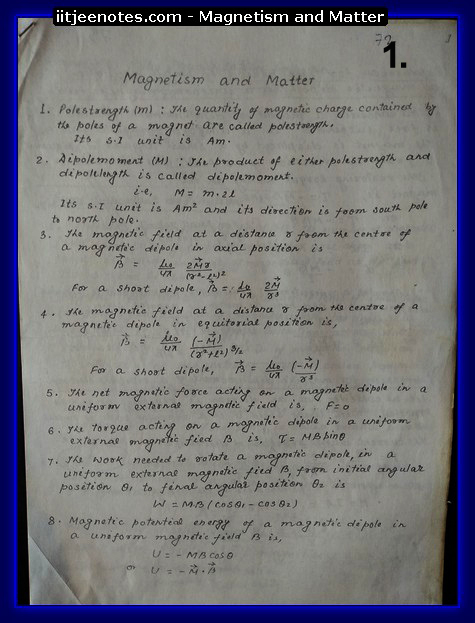 iitjeenotes.com - Magnetism and Matter
72
1.
Magnetism and Matter
1. Polestrength (m) : The quantity of magnetic charge contained by
the poles of a magnet are called polestrength.
Its S.I unit is Am.
2. Dipolemoment (M) : The product of either polestrength and
dipolelength is called dipolemoment.
i.e, M = m.2l
Its S.I unit is Am² and its direction is from south pole
to north pole.
3. The magnetic field at a distance r from the centre of
a magnetic dipole in axial position is
B⃗ = μ₀/4π 2M⃗r/(r²-l²)²
For a short dipole, B⃗ = μ₀/4π 2M⃗/r³
4. The magnetic field at a distance r from the centre of a
magnetic dipole in equitorial position is,
B⃗ = μ₀/4π (-M⃗)/(r²+l²)^3/2
For a short dipole, B⃗ = μ₀/4π (-M⃗)/r³
5. The net magnetic force acting on a magnetic dipole in a
uniform external magnetic field is, F=0
6. The torque acting on a magnetic dipole in a uniform
external magnetic fied B is, τ = MB sinθ
7. The work needed to rotate a magnetic dipole, in a
uniform external magnetic fied B, from initial angular
position θ₁ to final angular position θ₂ is
W = MB (cosθ₁ - cosθ₂)
8. Magnetic potential energy of a magnetic dipole in
a uniform magnetic field B is,
U = - MB cosθ
or U = - M⃗.B⃗